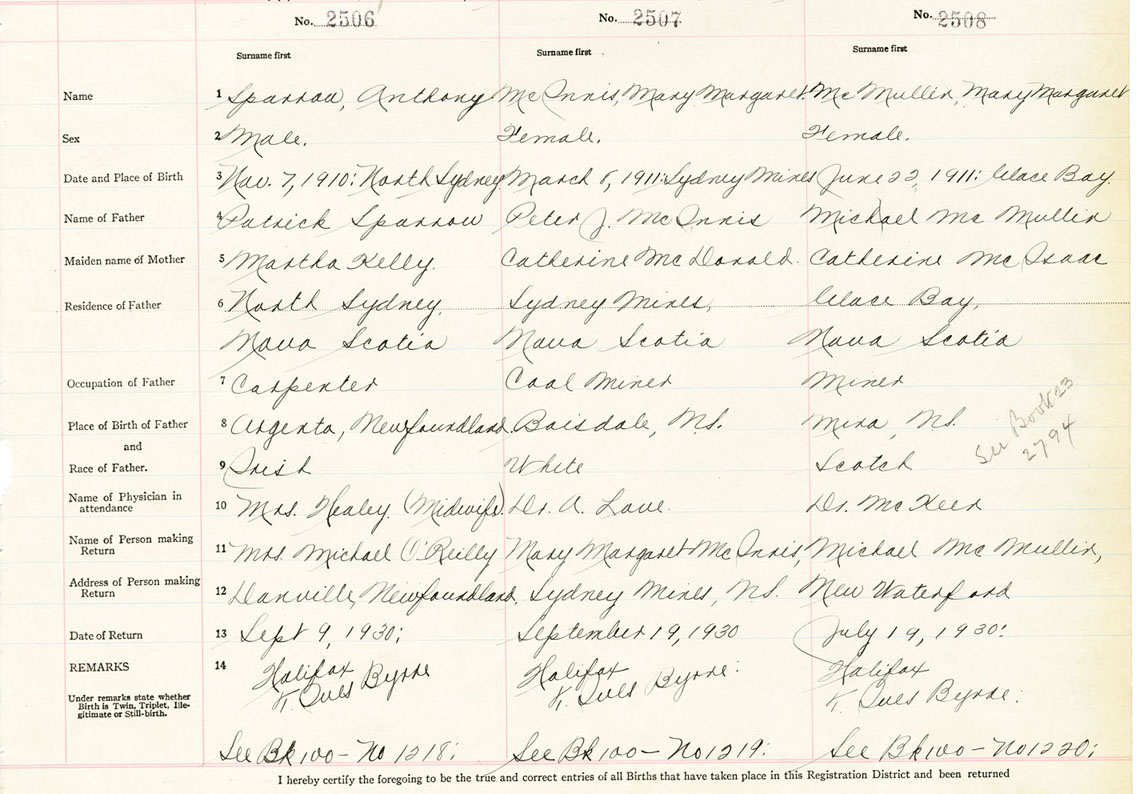 No. 2506 No. 2507 No. 2508
Surname first Surname first Surname first
Name 1 Sparrow, Anthony McInnis, Mary Margaret. McMullin, Mary Margaret
Sex 2 Male. Female. Female.
Date and Place of Birth 3 Nov. 7, 1910: North Sydney March 8, 1911: Sydney Mines June 22, 1911: Glace Bay.
Name of Father 4 Patrick Sparrow Peter J. McInnis Michael McMullin
Maiden name of Mother 5 Martha Kelly. Catherine McDonald. Catherine McIsaac
Residence of Father 6 North Sydney, Sydney Mines, Glace Bay,
Nova Scotia Nova Scotia Nova Scotia
Occupation of Father 7 Carpenter Coal Miner Miner
Place of Birth of Father 8 Argenta, Newfoundland. Boisdale, N.S. Mira, N.S.
and
Race of Father. 9 Irish White Scotch
See Book 23
2794
Name of Physician in
attendance 10 Mrs. Healey (Midwife) Dr. A. Love. Dr. McKeen
Name of Person making
Return 11 Mrs. Michael O'Reilly Mary Margaret McInnis, Michael McMullin,
Address of Person making
Return 12 Danville, Newfoundland, Sydney Mines, N.S. New Waterford
Date of Return 13 Sept 9, 1930; September 19, 1930 July 19, 1930:
REMARKS 14 Halifax Halifax Halifax
T. Ives Byrne T. Ives Byrne: T. Ives Byrne:
Under remarks state whether
Birth is Twin, Triplet, Ille-
gitimate or Still-birth.
See Bk 100 - No 1218; See Bk 100 - No 1219: See Bk 100 - No 1220;
I hereby certify the foregoing to be the true and correct entries of all Births that have taken place in this Registration District and been returned